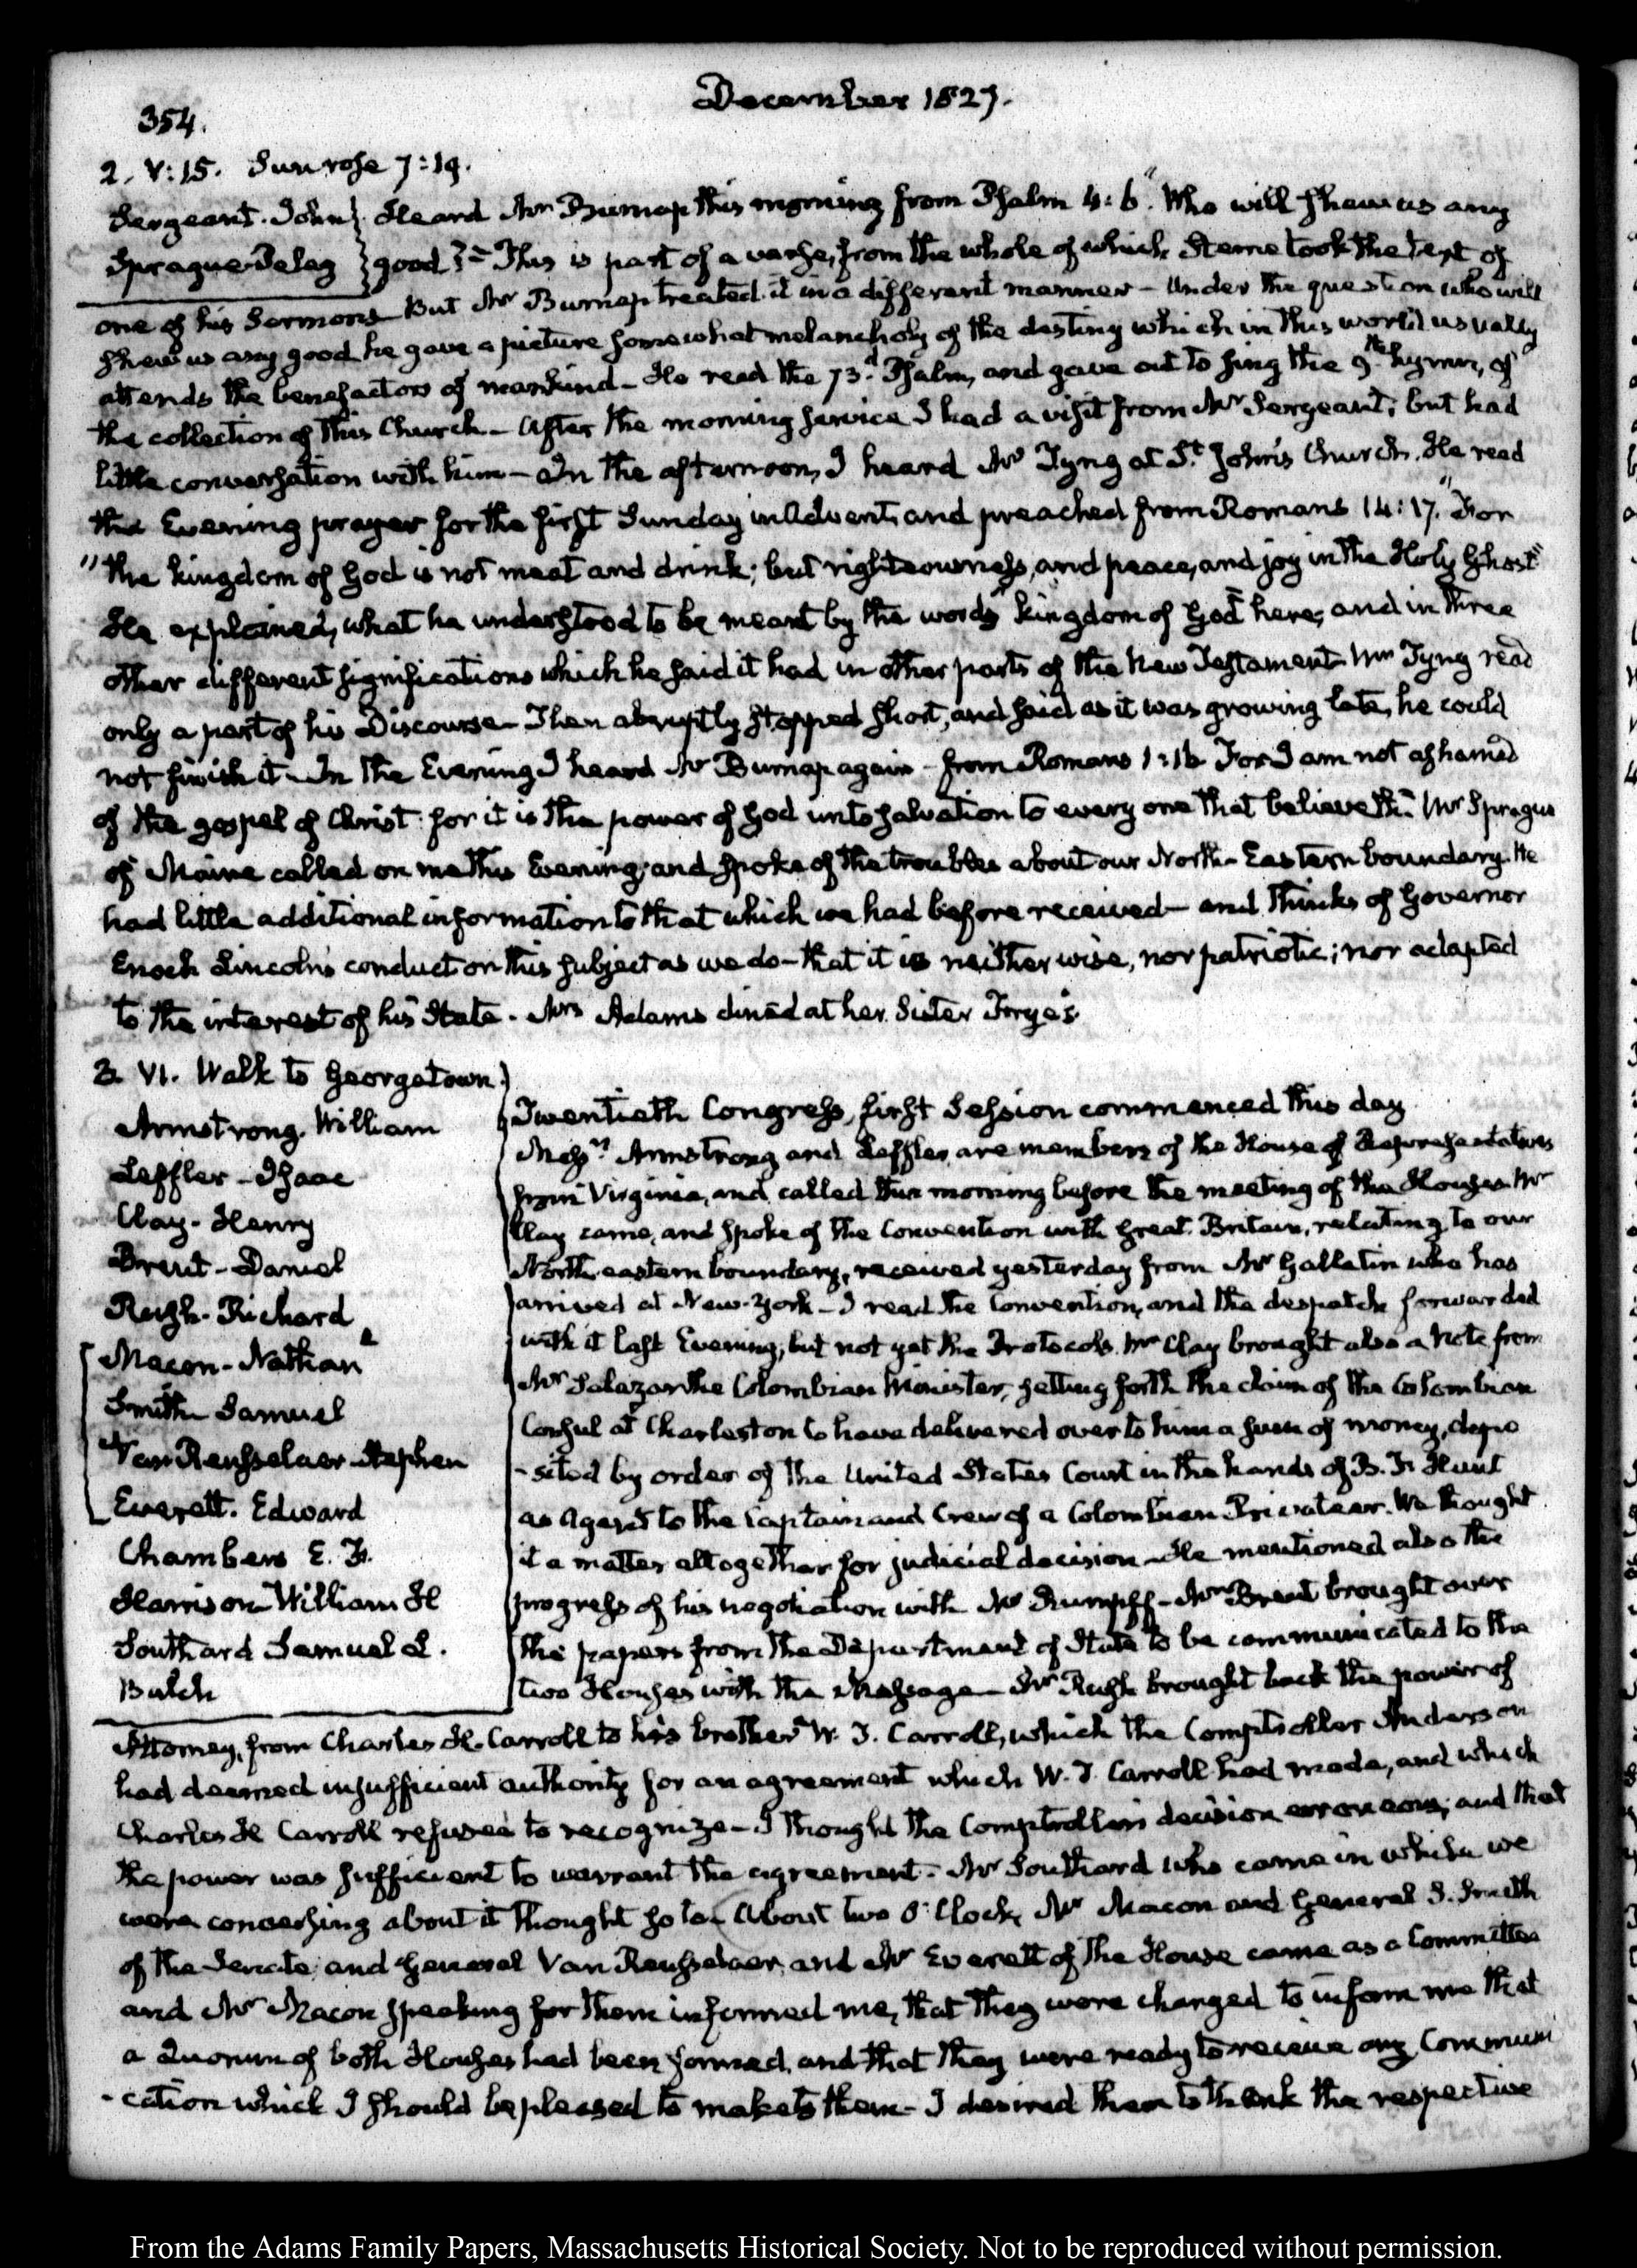 December 1827.
354.
2. V:15. Sun rose 7:19.
Sergeant. John } Heard Mr Burnap this morning from Psalm 4:6. "Who will shew us any
Sprague Peleg } good?" — This is part of a verse, from the whole of which Sterne took the text of
one of his Sermons — But Mr Burnap treated it in a different manner — Under the question who will
shew us any good he gave a picture somewhat melancholy of the destiny which in this world usually
attends the benefactors of mankind — He read the 73.d Psalm, and gave out to sing the 9.th hymn, of
the collection of this Church — After the morning service I had a visit from Mr Sergeant; but had
little conversation with him — In the afternoon, I heard Mr Tyng at St. John's Church. He read
the Evening prayer for the first Sunday in Advent, and preached from Romans 14:17. "For
"the kingdom of God is not meat and drink; but righteousness, and peace, and joy in the Holy Ghost"
He explained, what he understood to be meant by the words "kingdom of God" here; and in three
other different significations which he said it had in other parts of the New Testament. Mr Tyng read
only a part of his Discourse — Then abruptly stopped short, and said as it was growing late, he could
not finish it — In the Evening I heard Mr Burnap again — from Romans 1:16 For I am not ashamed
of the gospel of Christ: for it is the power of God unto salvation to every one that believeth." Mr Sprague
of Maine called on me this Evening; and spoke of the troubles about our North-Eastern boundary. He
had little additional information to that which we had before received — and thinks of Governor
Enoch Lincoln's conduct on this subject as we do — that it is neither wise, nor patriotic; nor adapted
to the interest of his State. Mrs Adams dined at her Sister Frye's.
3. VI. Walk to Georgetown.
Armstrong. William
Leffler — Isaac
Clay — Henry
Brent — Daniel
Rush — Richard
Macon — Nathan
Smith Samuel
Van Rensselaer Stephen
Everett. Edward
Chambers E. F.
Harrison William H
Southard Samuel L.
Bulch
Twentieth Congress, first Session commenced this day
Messrs. Armstrong and Leffler are members of the House of Representatives
from Virginia, and called this morning before the meeting of the Houses. Mr
Clay came, and spoke of the Convention with Great Britain, relating to our
North eastern boundary, received yesterday from Mr Gallatin who has
arrived at New-York — I read the Convention, and the despatch forwarded
with it last Evening; but not yet the Protocols. Mr Clay brought also a Note from
Mr Salazar the Colombian Minister, setting forth the claim of the Colombian
Consul at Charleston to have delivered over to him a sum of money, depo
-sited by order of the United States Court in the hands of B. F. Hunt
as Agent to the Captain and Crew of a Colombian Privateer. We thought
it a matter altogether for judicial decision — He mentioned also the
progress of his negotiation with Mr Rumpff — Mr Brent brought over
the papers from the Department of State to be communicated to the
two Houses with the Message — Mr Rush brought back the power of
Attorney, from Charles H. Carroll to his brother W. T. Carroll, which the Comptroller Anderson
had deemed insufficient authority for an agreement which W. T. Carroll had made, and which
Charles H Carroll refused to recognize — I thought the Comptroller's decision erroneous; and that
the power was sufficient to warrant the agreement. Mr Southard who came in while we
were conversing about it thought so too — About two O'Clock, Mr Macon and General S. Smith
of the Senate; and General Van Rensselaer, and Mr Everett of the House came as a Committee
and Mr Macon speaking for them informed me, that they were charged to inform me that
a Quorum of both Houses had been formed, and that they were ready to receive any Communi
-cation which I should be pleased to make to them — I desired them to thank the respective
From the Adams Family Papers, Massachusetts Historical Society. Not to be reproduced without permission.